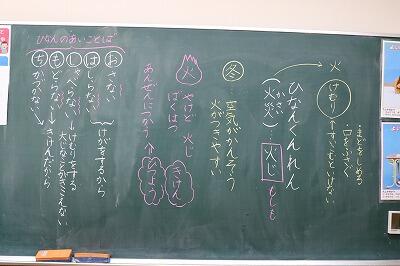 ・まどをしめる
口をふさぐ
火
けむり
←すいこむといけない
ひなんくんれん
かさい
(火災)
火じ
もしも
冬
空気がかんそう
火がつきやすい
火
やけど
火じ
ばくはつ
あんぜんにつかう
きけん
ひなんのあいことば
おさない
はしらない
けがをするから
しゃべらない
けむりをする
大じなことがきこえない
もどらない
きけんだから
ちかづかない